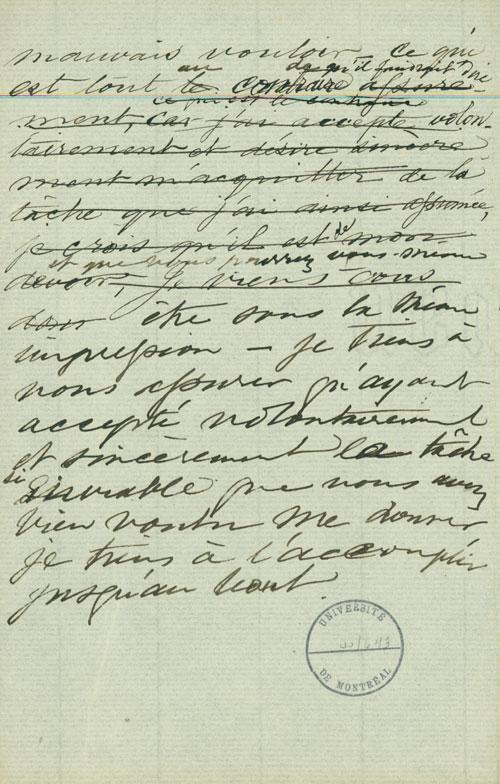 mauvais vouloir. ce qui
au de qu'il faudrait dire
est tout le contraire assuré-
ce qui est le contraire
ment, car j'ai accepté volon-
tairement et désire sincère
ment m'acquitter de la
tâche que j'ai ainsi assumée,
je crois qu'il est de mon
et que vous pourriez vous-même
devoir, Je viens vous
donc être sous la même
impression — je tiens à
vous assurer qu'ayant
accepté volontairement
et sincèrement la tâche
si que vous avez
bien voulu me donner
je tiens à l'accomplir
jusqu'au bout.
UNIVERSITÉ
DE MONTRÉAL